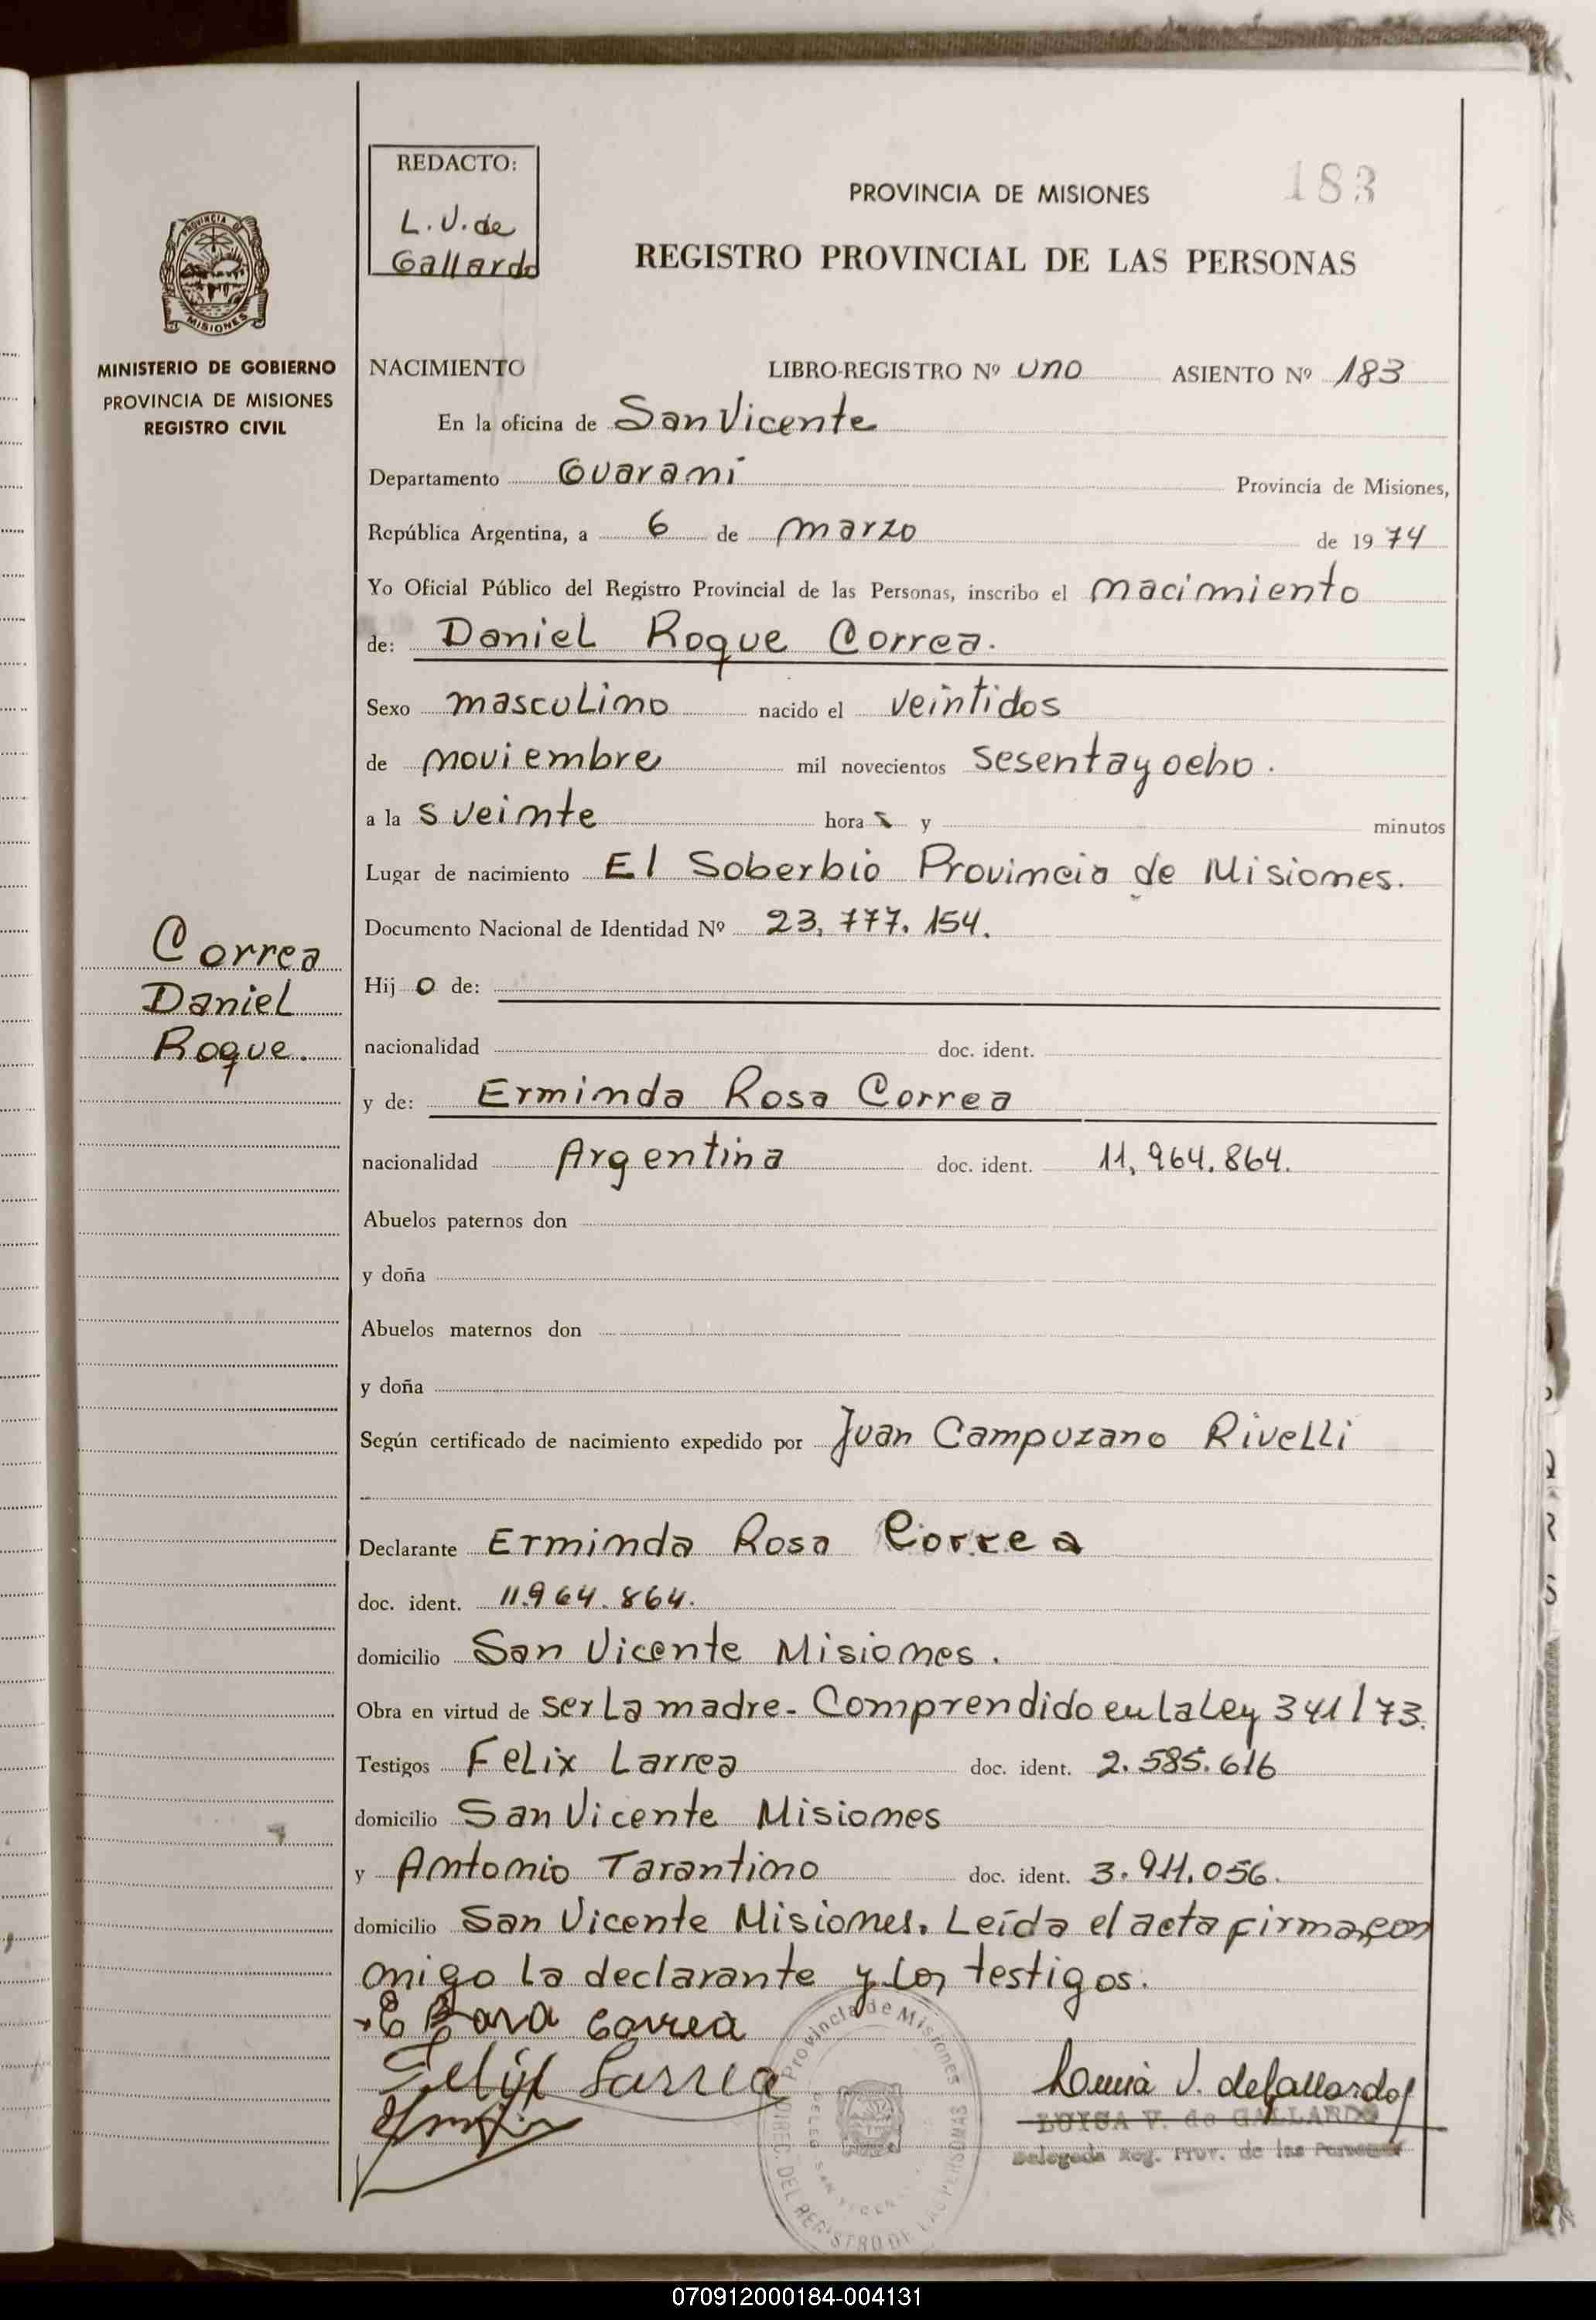 REDACTO:
L. V. de
Gallardo
PROVINCIA DE MISIONES
183
REGISTRO PROVINCIAL DE LAS PERSONAS
PROVINCIA DE
MISIONES
MINISTERIO DE GOBIERNO
PROVINCIA DE MISIONES
REGISTRO CIVIL
NACIMIENTO LIBRO-REGISTRO Nº uno ASIENTO Nº 183
En la oficina de San Vicente
Departamento Guarani Provincia de Misiones,
República Argentina, a 6 de marzo de 1974
Yo Oficial Público del Registro Provincial de las Personas, inscribo el nacimiento
de: Daniel Roque Correa.
Sexo masculino nacido el veintidos
de noviembre mil novecientos sesenta y ocho.
a las veinte horas y minutos
Lugar de nacimiento El Soberbio Provincia de Misiones.
Documento Nacional de Identidad Nº 23,777.154.
Correa
Daniel
Roque.
Hijo de:
nacionalidad doc. ident.
y de: Erminda Rosa Correa
nacionalidad Argentina doc. ident. 11,964.864.
Abuelos paternos don
y doña
Abuelos maternos don
y doña
Según certificado de nacimiento expedido por Juan Campuzano Rivelli
Declarante Erminda Rosa Correa
doc. ident. 11.964.864.
domicilio San Vicente Misiones.
Obra en virtud de ser la madre - Comprendido en la Ley 341/73.
Testigos Felix Larrea doc. ident. 2.585.616
domicilio San Vicente Misiones
y Antonio Tarantino doc. ident. 3.911.056.
domicilio San Vicente Misiones. Leída el acta firman con
migo la declarante y los testigos.
Correa
Felix Larrea
Luisa V. de Gallardo
LUISA V. de GALLARDO
Delegada Reg. Prov. de las Personas
Provincia de Misiones
DIREC. DEL REGISTRO DE LAS PERSONAS
DELEG. SAN VICENTE
070912000184-004131